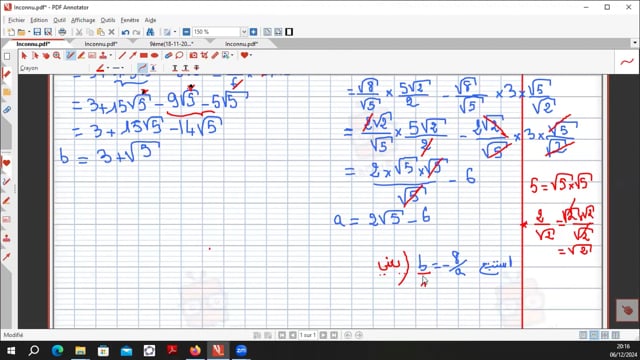 Inconnu.pdf* - PDF Annotator
Fichier Edition Affichage Document Outils Aide
150 %
Inconnu.pdf* Inconnu.pdf* 9ème(18-11-20... Inconnu.pdf*
Crayon
= 3 + 15√5 - 9√5 - 5√5
= 3 + 15√5 - 14√5
b = 3 + √5
= √8/√5 × 5√2/2 - √8/√5 × 3 × √5/√2
= 2√2/√5 × 5√2/2 - 2√2/√5 × 3 × √5/√2
= 2 × √5 × √5/√5 - 6
a = 2√5 - 6
استنتج b = -8/a (يعني
5 = √5 × √5
* 2/√2 = √2 × √2/√2
= √2
Modifié
1 sur 1
20:16
06/12/2024